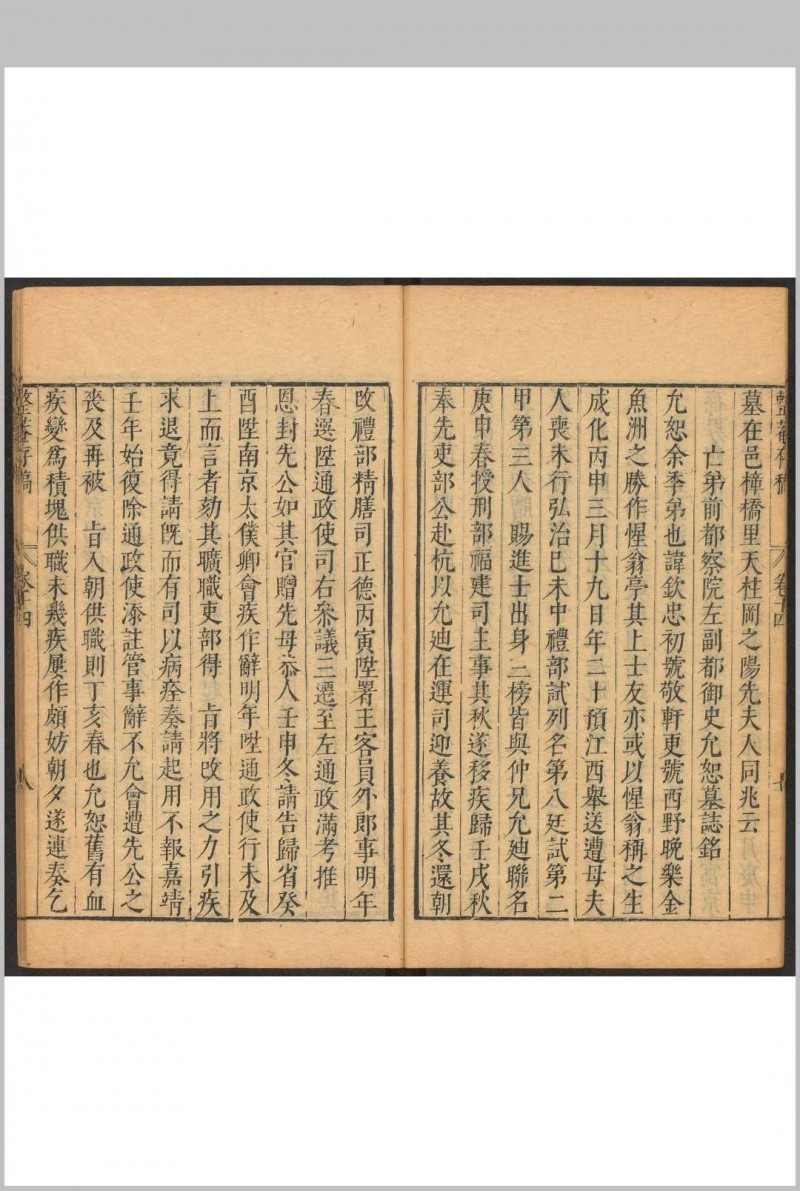 整菴存稿 卷十四
墓在邑樟橋里天柱岡之陽先夫人同兆云
亡弟前都察院左副都御史允恕墓誌銘
允恕余季弟也諱欽忠初號敬軒更號西野晚樂金
魚洲之勝作惺翁亭其上士友亦或以惺翁稱之生
成化丙申三月十九日年二十預江西舉送遭母夫
人喪未行弘治己未中禮部試列名第八廷試第二
甲第三人 賜進士出身二榜皆與仲兄允迪聯名
庚申春授刑部福建司主事其秋遂移疾歸壬戌秋
奉先吏部公赴杭以允迪在運司迎養故其冬還朝
改禮部精膳司正德丙寅陞署主客員外郎事明年
春選陞通政使司右叅議三遷至左通政滿考推
恩封先公如其官贈先母恭人壬申冬請告歸省癸
酉陞南京太僕卿會疾作辭明年陞通政使行未及
上而言者劾其曠職吏部得 旨將改用之力引疾
求退竟得請旣而有司以病痊奏請起用不報嘉靖
壬年始復除通政使添註管事辭不允會遭先公之
喪及再被 旨入朝供職則丁亥春也允恕舊有血
疾變爲積塊供職未幾疾屢作頗妨朝夕遂連奏乞
整菴存稿 卷十四 八